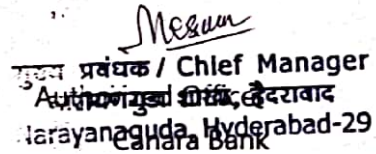 मुख्य प्रबंधक / Chief Manager
Authorised Officer
नारायणगुडा शाखा, हैदराबाद
Narayanaguda, Hyderabad-29
Canara Bank